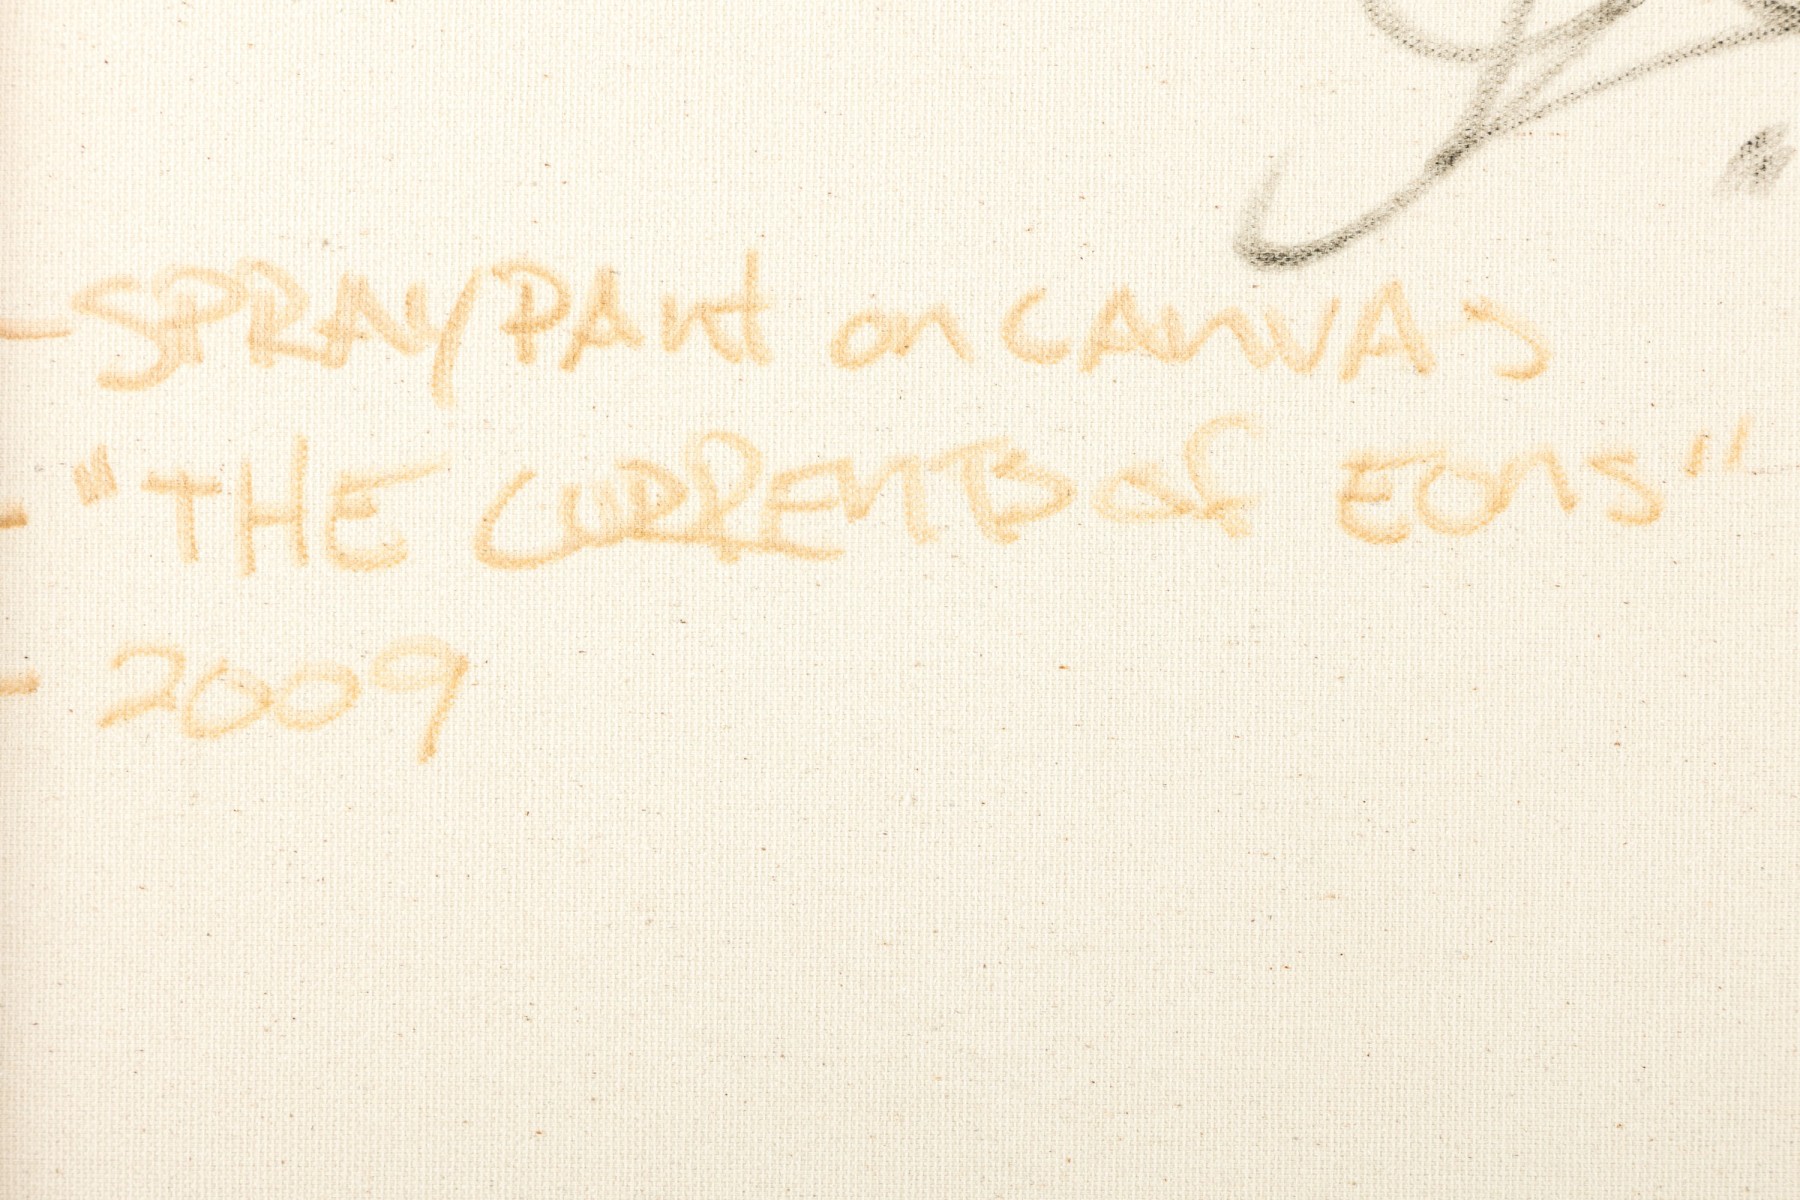 - SPRAYPAint on CANVAS
- "THE CURRENTS of EONS"
- 2009